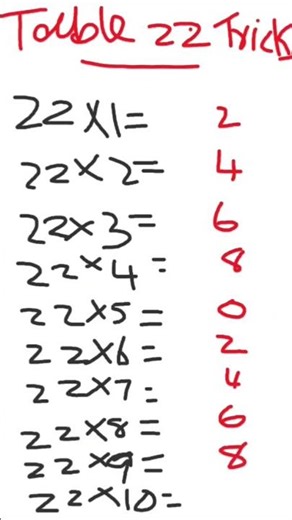 Table 22 Trick
22×1= 2
22×2= 4
22×3= 6
22×4= 8
22×5= 0
22×6= 2
22×7= 4
22×8= 6
22×9= 8
22×10=